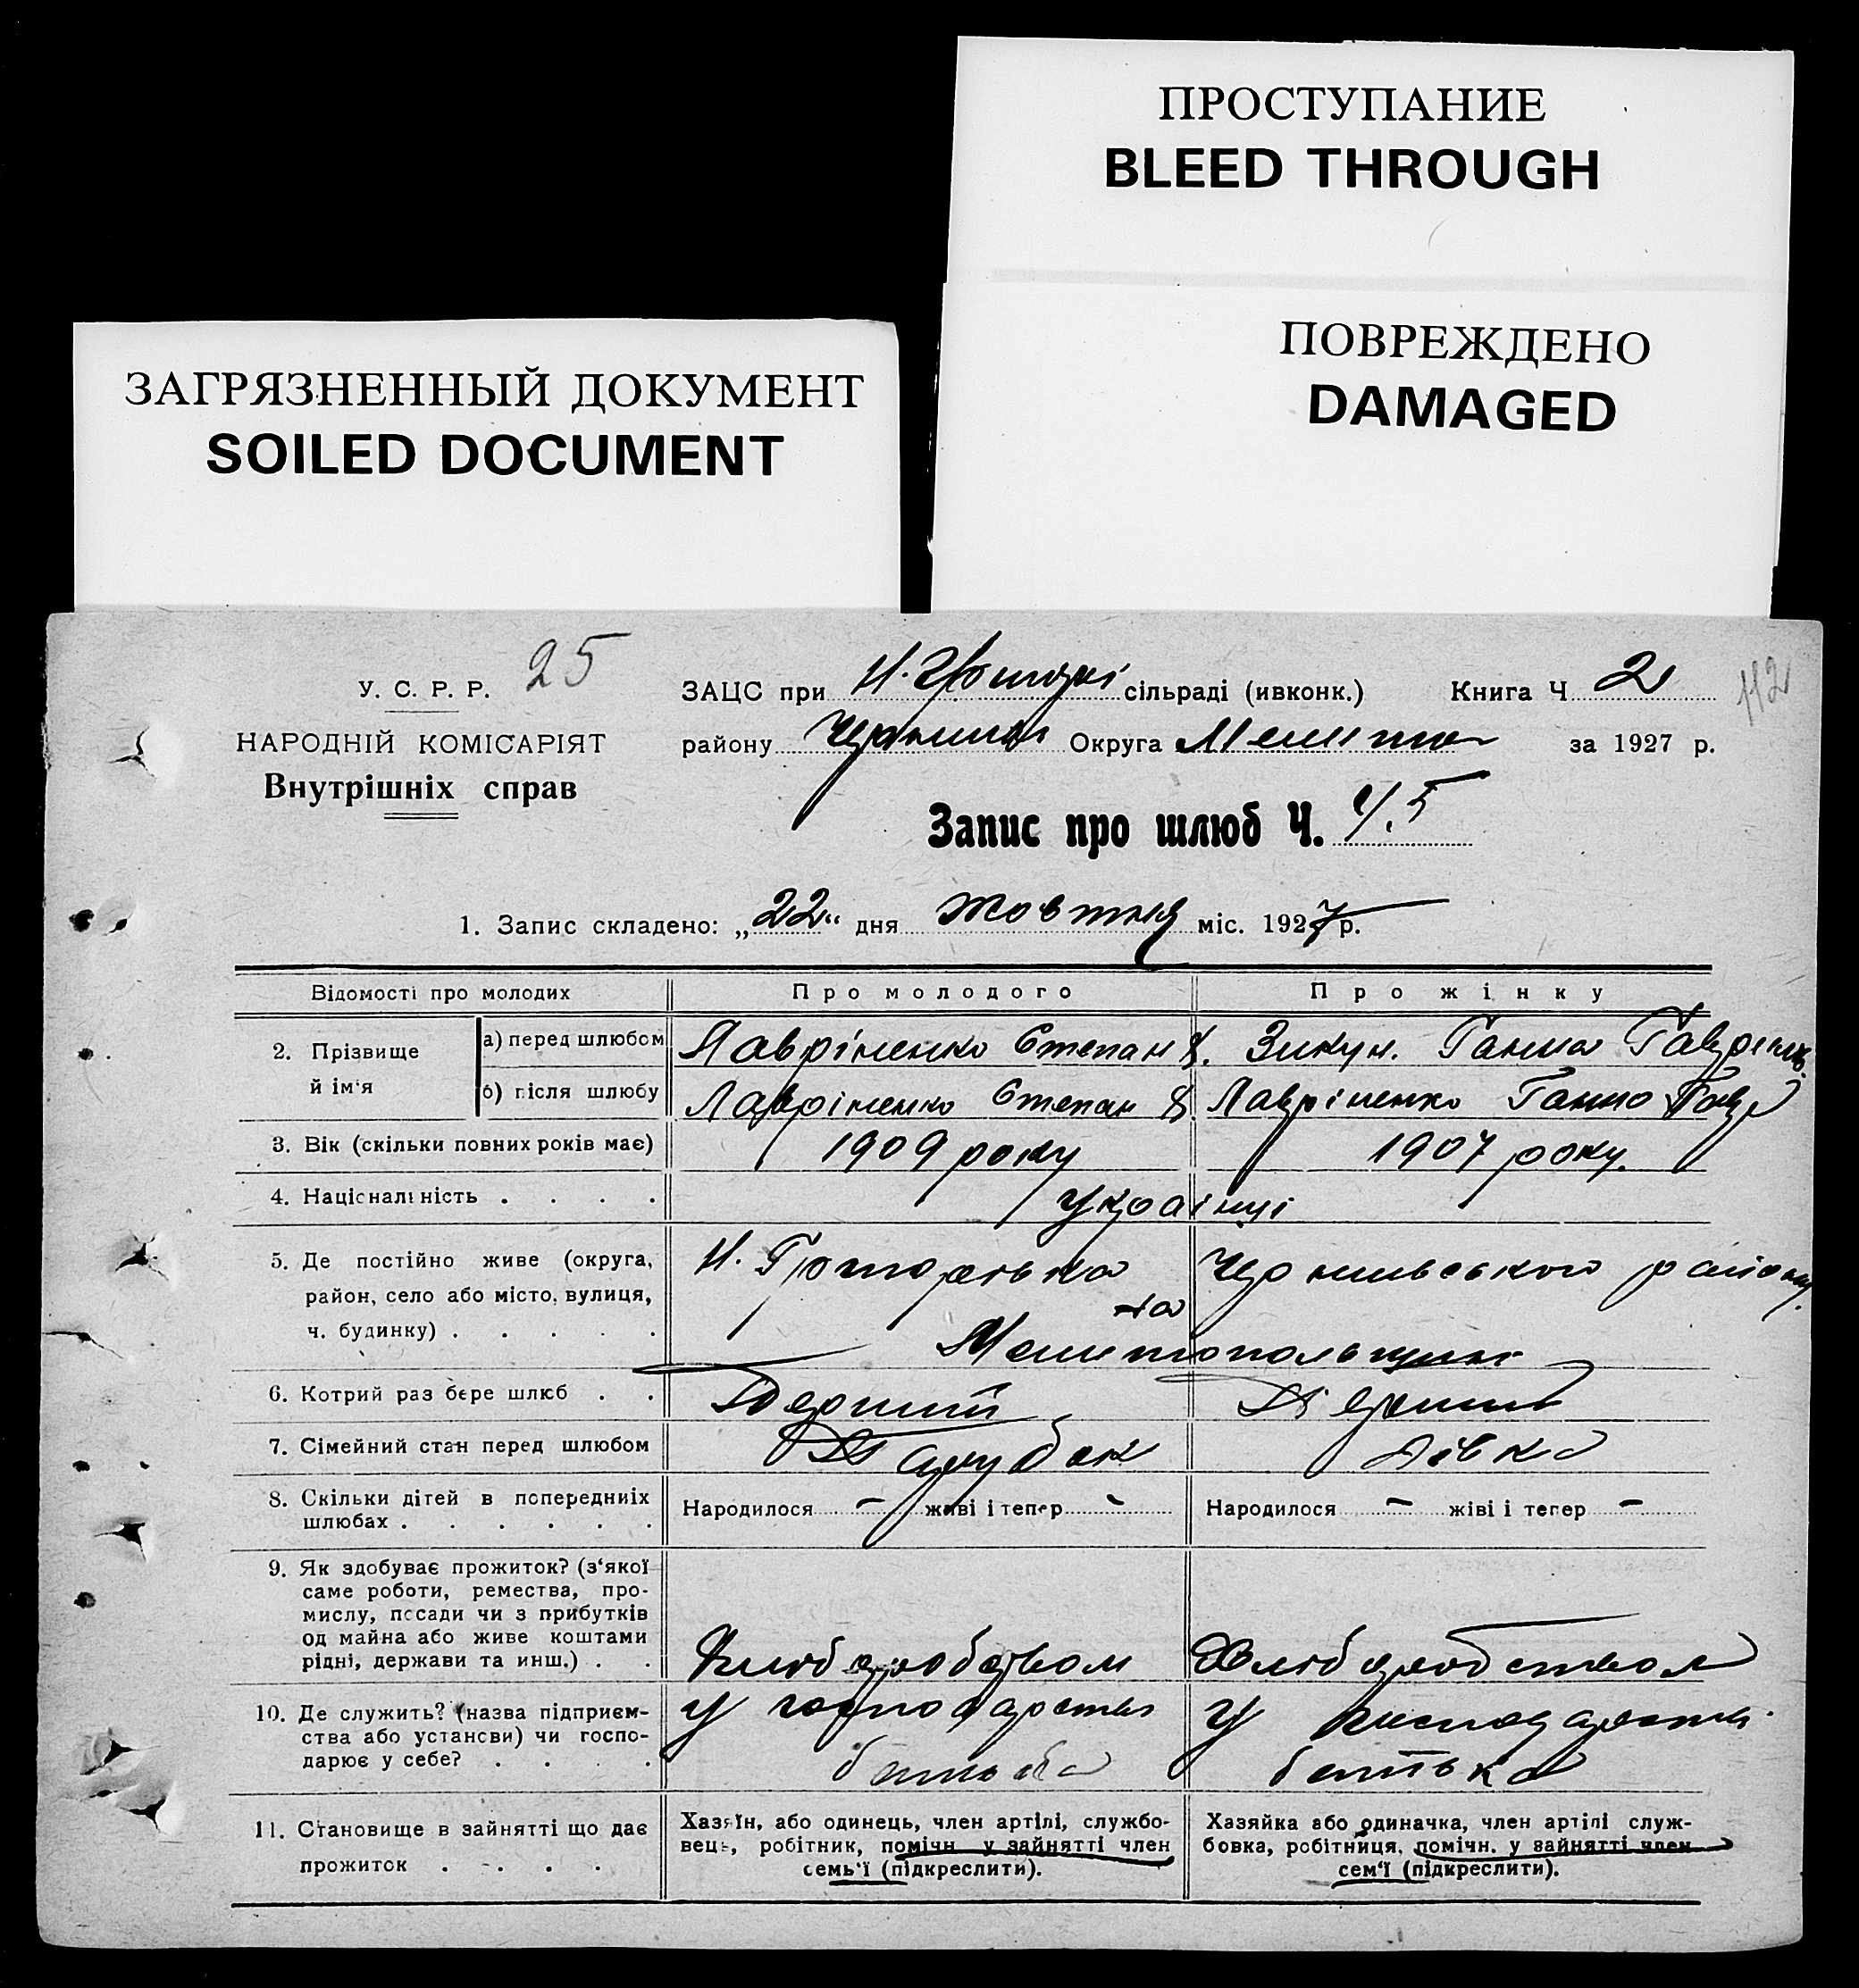 ПРОСТУПАНИЕ
BLEED THROUGH
ПОВРЕЖДЕНО
DAMAGED
ЗАГРЯЗНЕННЫЙ ДОКУМЕНТ
SOILED DOCUMENT
У. С. Р. Р. 25
НАРОДНІЙ КОМІСАРІЯТ
Внутрішніх справ
ЗАЦС при сільраді (ивконк.) Книга Ч 2 112
району Округа за 1927 р.
Запис про шлюб Ч. 45
1. Запис складено: „22“ дня жовтня міс. 1927 р.
Відомості про молодих Про молодого Про жінку
2. Прізвище й ім'я
а) перед шлюбом Лавріненко Степан Зикун. Ганна
б) після шлюбу Лавріненко Степан Лавріненко Ганна
3. Вік (скільки повних років має) 1909 року 1907 року.
4. Національність . . . . Українці
5. Де постійно живе (округа,
район, село або місто, вулиця,
ч. будинку) . . . . .
Н. району.
на
Мелитопольщині
6. Котрий раз бере шлюб . . Перший Перший
7. Сімейний стан перед шлюбом Парубок Дівка
8. Скільки дітей в попередниіх
шлюбах . . . . . .
Народилося – живі і тепер – Народилося – живі і тепер –
9. Як здобуває прожиток? (з'якої
саме роботи, ремества, про-
мислу, посади чи з прибутків
од майна або живе коштами
рідні, держави та инш.) . .
Хліборобством Хліборобством
10. Де служить? (назва підприєм-
ства або установи) чи госпо-
дарює у себе? . . . .
у господарстві у господарстві
батька батька
11. Становище в зайнятті що дає
прожиток . - . . .
Хазяїн, або одинець, член артілі, службо-
вець, робітник, помічн. у зайнятті член
семь'ї (підкреслити).
Хазяйка або одиначка, член артілі служ-
бовка, робітниця, помічн. у зайнятті член
сем'ї (підкреслити).